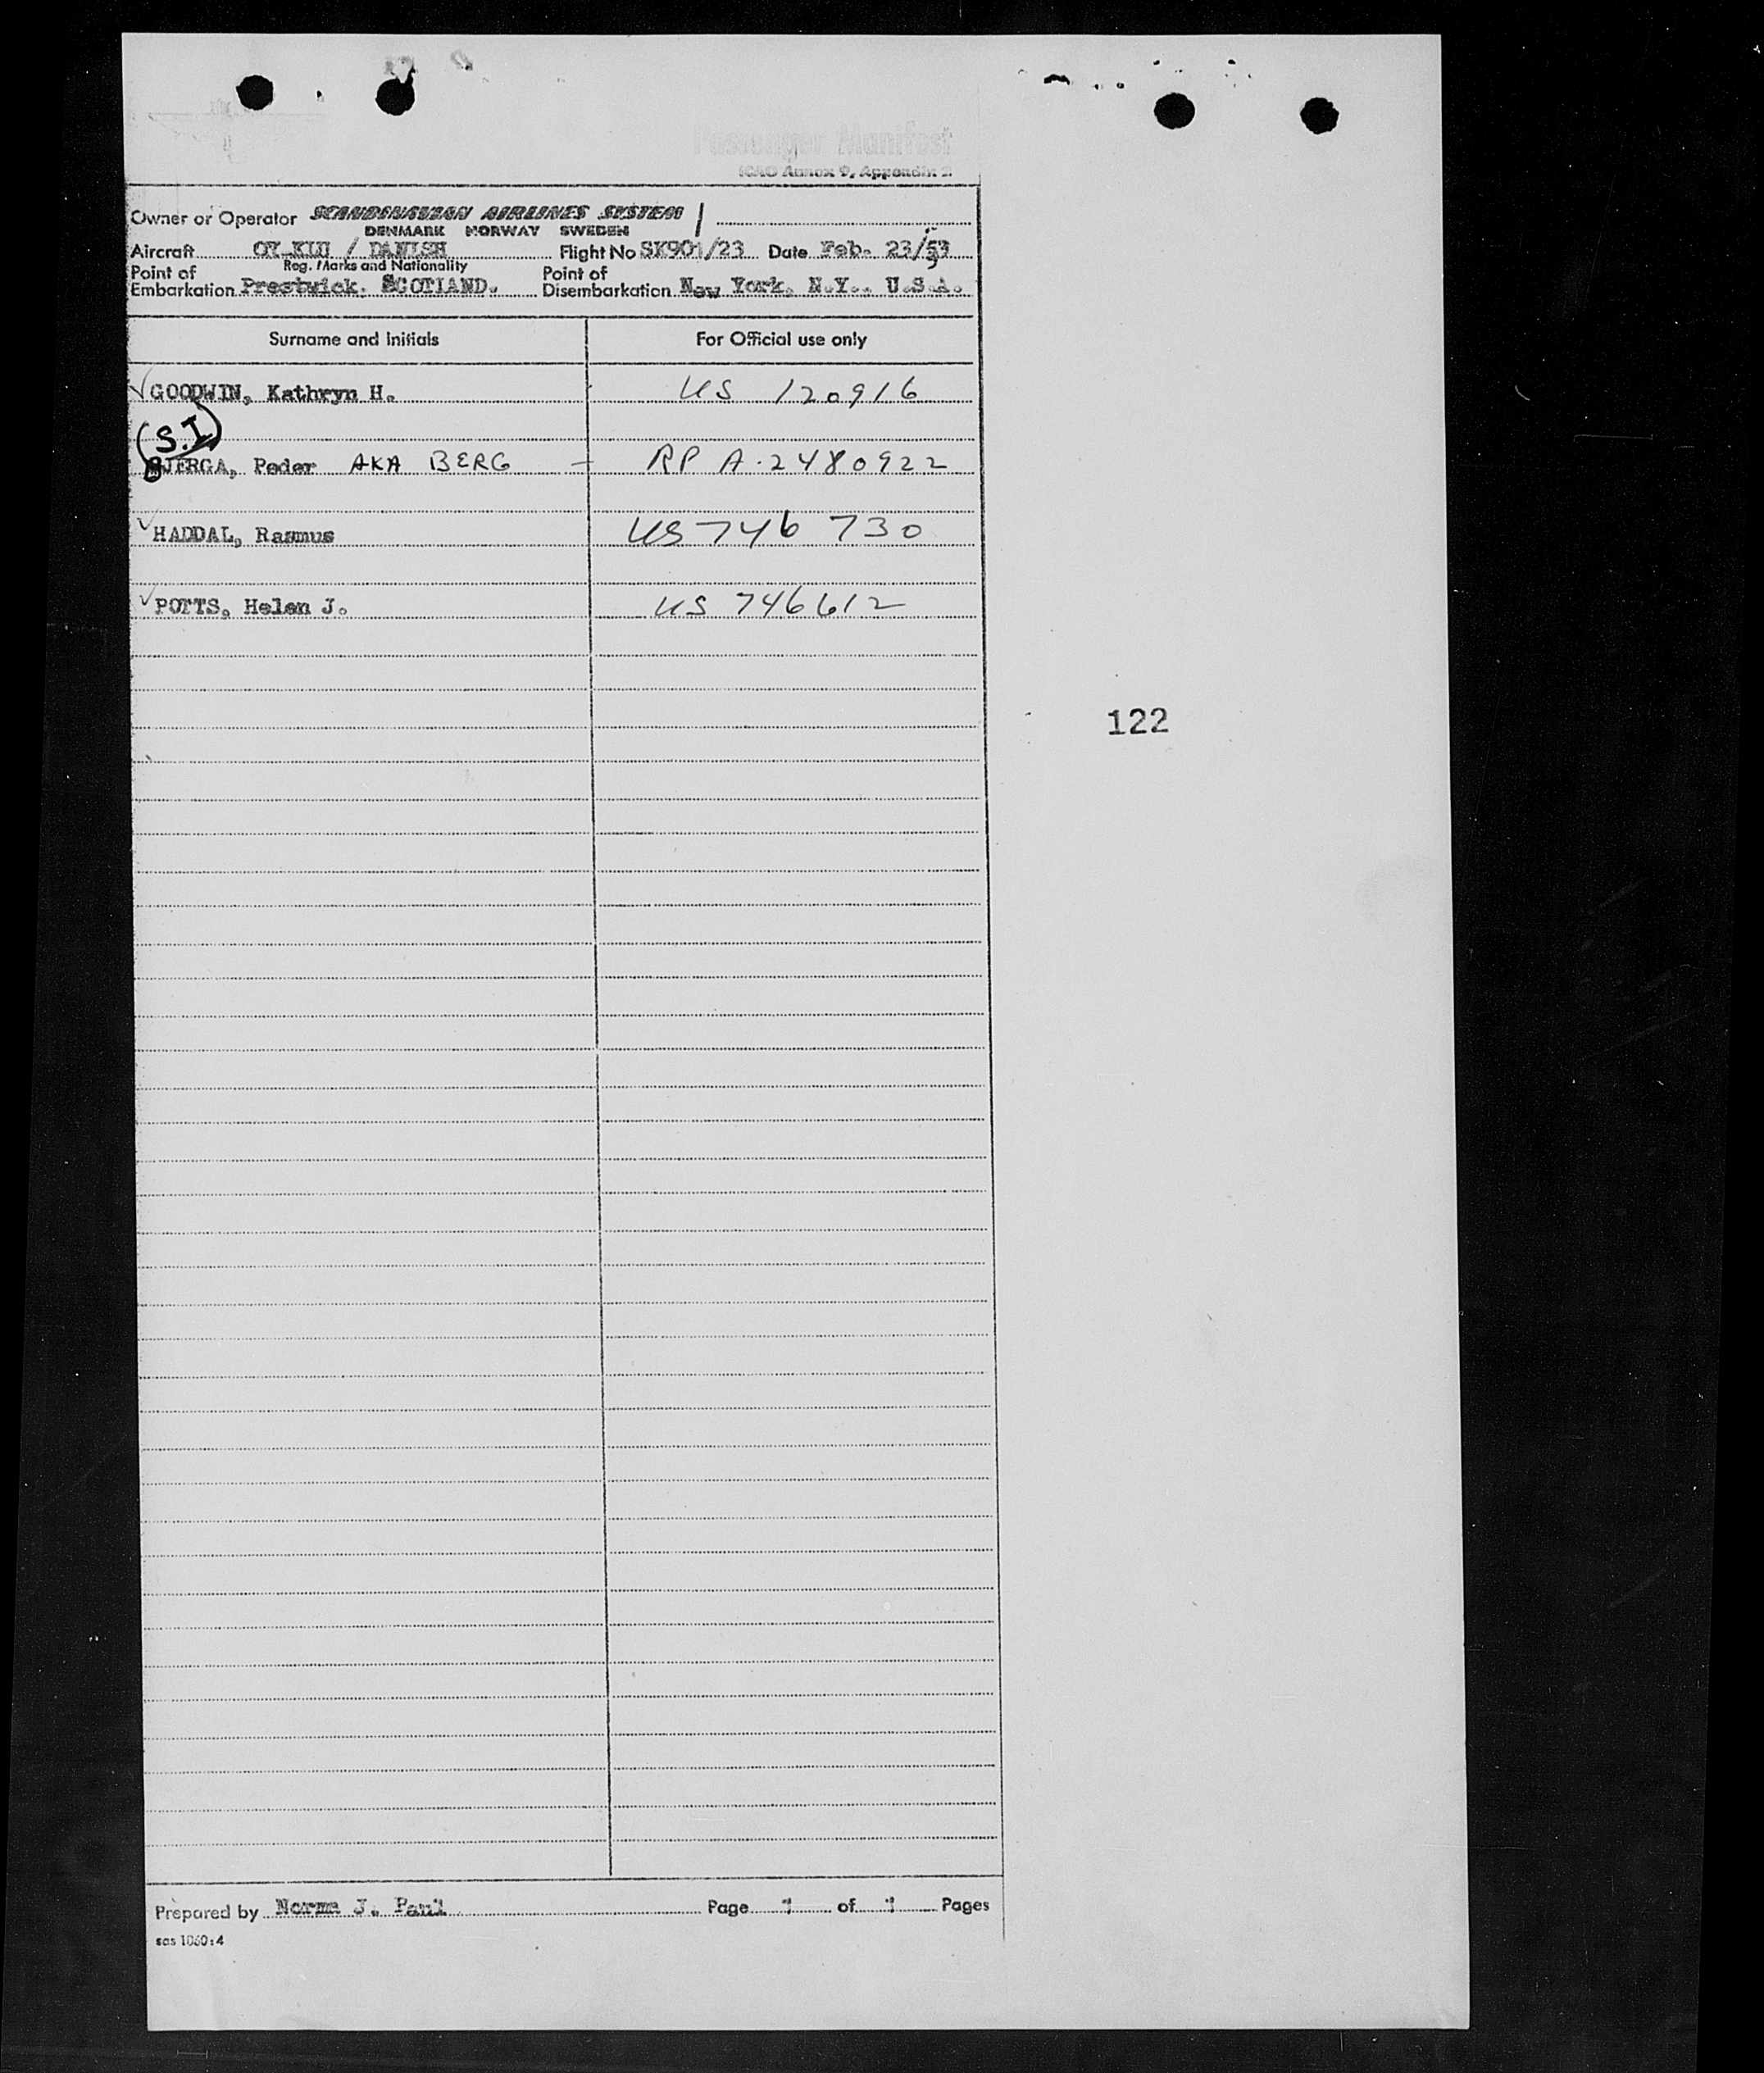 Passenger Manifest
ICAO Annex 9, Appendix 2
Owner or Operator SCANDINAVIAN AIRLINES SYSTEM
DENMARK NORWAY SWEDEN
Aircraft OY-KLU / DANISH Flight No SK901/23 Date Feb. 23/53
Reg. Marks and Nationality
Point of Embarkation Prestwick. SCOTLAND. Point of Disembarkation New York. N.Y.. U.S.A.
Surname and Initials For Official use only
GOODWIN, Kathryn H. US 120916
(S.I)
BJERGA, Peder AKA BERG - RP A.2480922
HADDAL, Rasmus US 746 730
POTTS, Helen J. US 746612
122
Prepared by Norma J. Paul Page 1 of 1 Pages
sas 1060:4